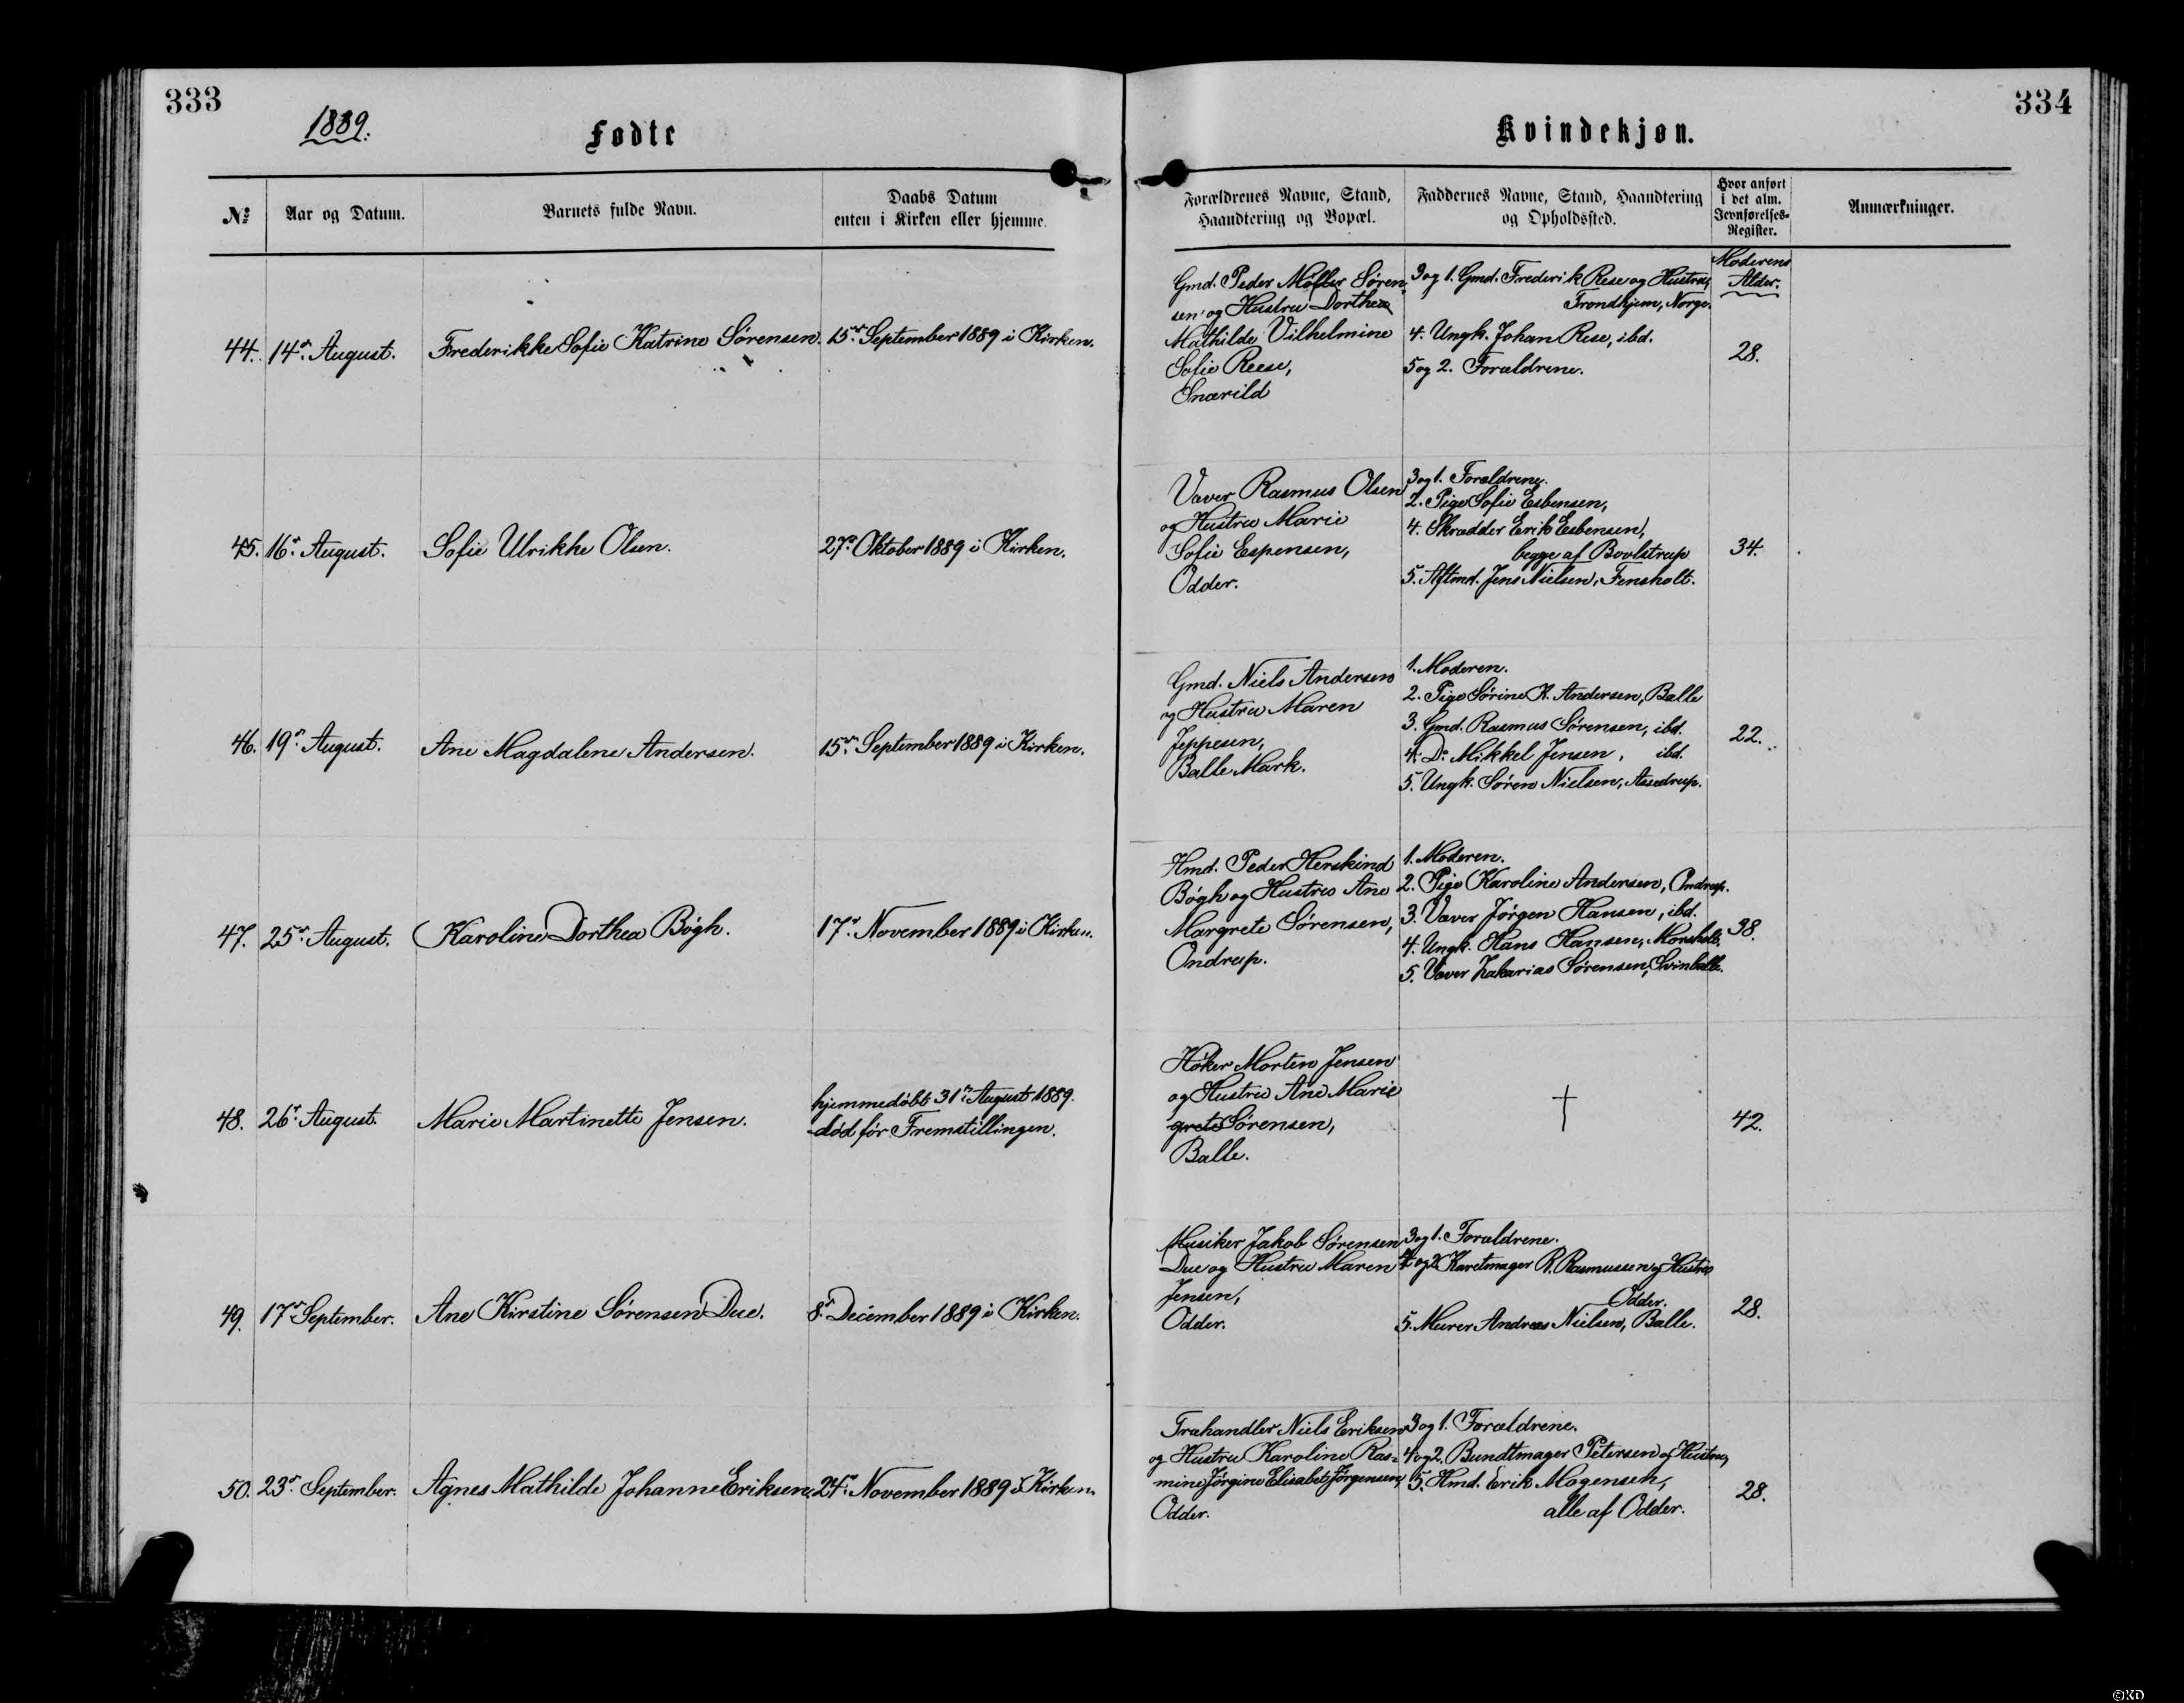 333
1889.
Fødte
№
Aar og Datum.
Barnets fulde Navn.
Daabs Datum
enten i Kirken eller hjemme.
44. 14de August. Frederikke Sofie Katrine Sørensen. 15de September 1889 i Kirken.
45. 16de August. Sofie Ulrikke Olsen. 27de Oktober 1889 i Kirken.
46. 19de August. Ane Magdalene Andersen. 15de September 1889 i Kirken.
47. 25de August. Karoline Dorthea Bøgh. 17de November 1889 i Kirken.
48. 26de August. Marie Martinette Jensen.
hjemmedøbt 31te August 1889.
død før Fremstillingen.
49. 17de September. Ane Kirstine Sørensen Due. 8de December 1889 i Kirken.
50. 23de September. Agnes Mathilde Johanne Eriksen. 24de November 1889 i Kirken.
334
Kvindekjøn.
Forældrenes Navne, Stand,
Haandtering og Bopæl.
Faddernes Navne, Stand, Haandtering
og Opholdssted.
Hvor anført
i det alm.
Jevnførelses-
Register.
Anmærkninger.
Moderens
Alder.
Gmd. Peder Møller Søren-
sen og Hustru Dorthea
Mathilde Vilhelmine
Sofie Reese,
Snærild
3 og 1. Gmd. Frederik Rese og Hustru,
Trondhjem, Norge.
4. Ungk. Johan Rese, ibd.
5 og 2. Forældrene.
28.
Væver Rasmus Olsen
og Hustru Marie
Sofie Espensen,
Odder.
3 og 1. Forældrene.
2. Pige Sofie Esbensen,
4. Skrædder Erik Esbensen,
begge af Bovlstrup
5. Aftmd. Jens Nielsen, Fensholt.
34.
Gmd. Niels Andersen
og Hustru Maren
Jeppesen,
Balle Mark.
1. Moderen.
2. Pige Sørine K. Andersen, Balle
3. Gmd. Rasmus Sørensen, ibd.
4. Do. Mikkel Jensen, ibd.
5. Ungk. Søren Nielsen, Assedrup.
22.
Hmd. Peder Herskind
Bøgh og Hustru Ane
Margrete Sørensen,
Ondrup.
1. Moderen.
2. Pige Karoline Andersen, Ondrup.
3. Væver Jørgen Hansen, ibd.
4. Ungk. Hans Hansen, Morsholt,
5. Væver Zakarias Sørensen, Svinballe.
38.
Høker Morten Jensen
og Hustru Ane Marie
grete Sørensen,
Balle.
†
42.
Musiker Jakob Sørensen
Due og Hustru Maren
Jensen,
Odder.
3 og 1. Forældrene.
4 og 2. Karetmager R. Rasmussen og Hustru
Odder.
5. Murer Andreas Nielsen, Balle.
28.
Træhandler Niels Eriksen
og Hustru Karoline Ras-
mine Jørgine Elisabet Jørgensen,
Odder.
3 og 1. Forældrene.
4 og 2. Bundtmager Petersen og Hustru,
5. Hmd. Erik Mogensen,
alle af Odder.
28.
©KD